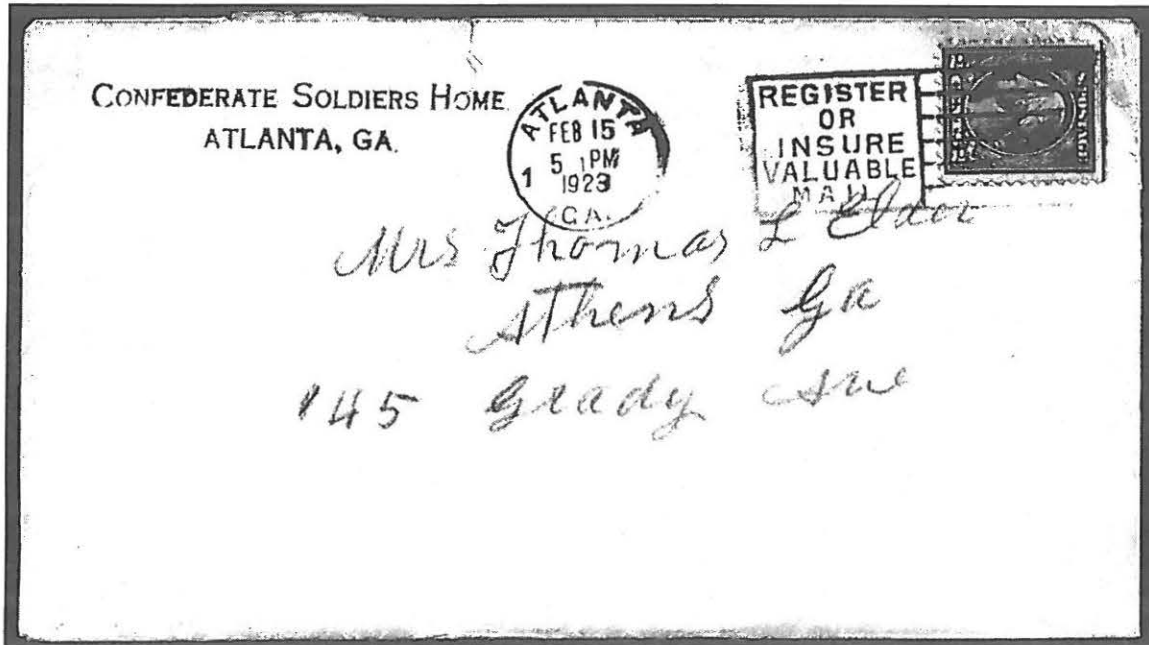 CONFEDERATE SOLDIERS HOME
ATLANTA, GA.
ATLANTA
FEB 15
5 PM
1923
1
GA.
REGISTER
OR
INSURE
VALUABLE
MAIL
Mrs Thomas L Elder
Athens Ga
145 Grady Ave